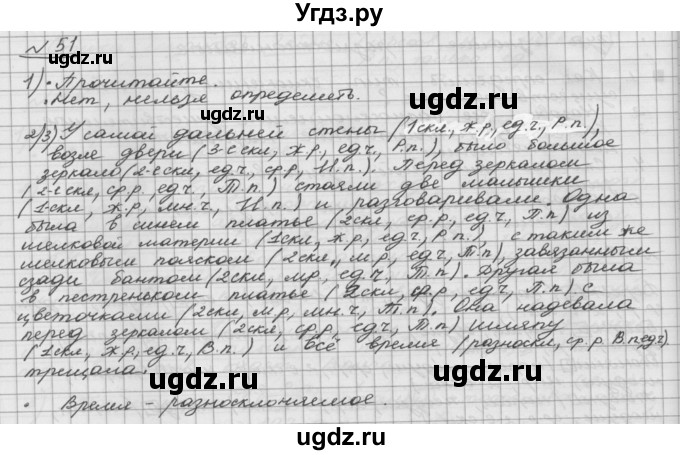 Угдз.ру
№ 51
1) • Прочитайте.
• Нет, нельзя определить.
2)3) У самой дальней стены (1скл, ж.р, ед.ч., Р.п.),
возле двери (3-е скл, ж.р, ед.ч, Р.п.), было большое
зеркало (2-е скл, ед.ч, ср.р, И.п.). Перед зеркалом
(2-е скл, ср.р, ед.ч, Т.п.) стояли две малышки
(1-скл, ж.р, мн.ч, И.п.) и разговаривали. Одна
была в синем платье (2скл, ср.р, ед.ч, Т.п) из
шелковой материи (1скл, ж.р, ед.ч, Р.п.), с таким же
шелковым пояском (2скл, м.р, ед.ч, Т.п), завязанным
сзади бантом (2скл, м.р, ед.ч, Т.п). Другая была
в пестреньком платье (2скл, ср.р, ед.ч, П.п) с
цветочками (2скл, м.р, мн.ч, Т.п). Она надевала
перед зеркалом (2скл, ср.р, ед.ч, Т.п) шляпу
(1скл, ж.р, ед.ч, В.п.) и всё время (разноскл, ср.р. В.п ед.ч)
трещала.
• Время – разносклоняемое.
uгdz.ru
uгdz.ru
uгdz.ru
uгdz.ru
uгdz.ru
uгdz.ru
uгdz.ru
uгdz.ru